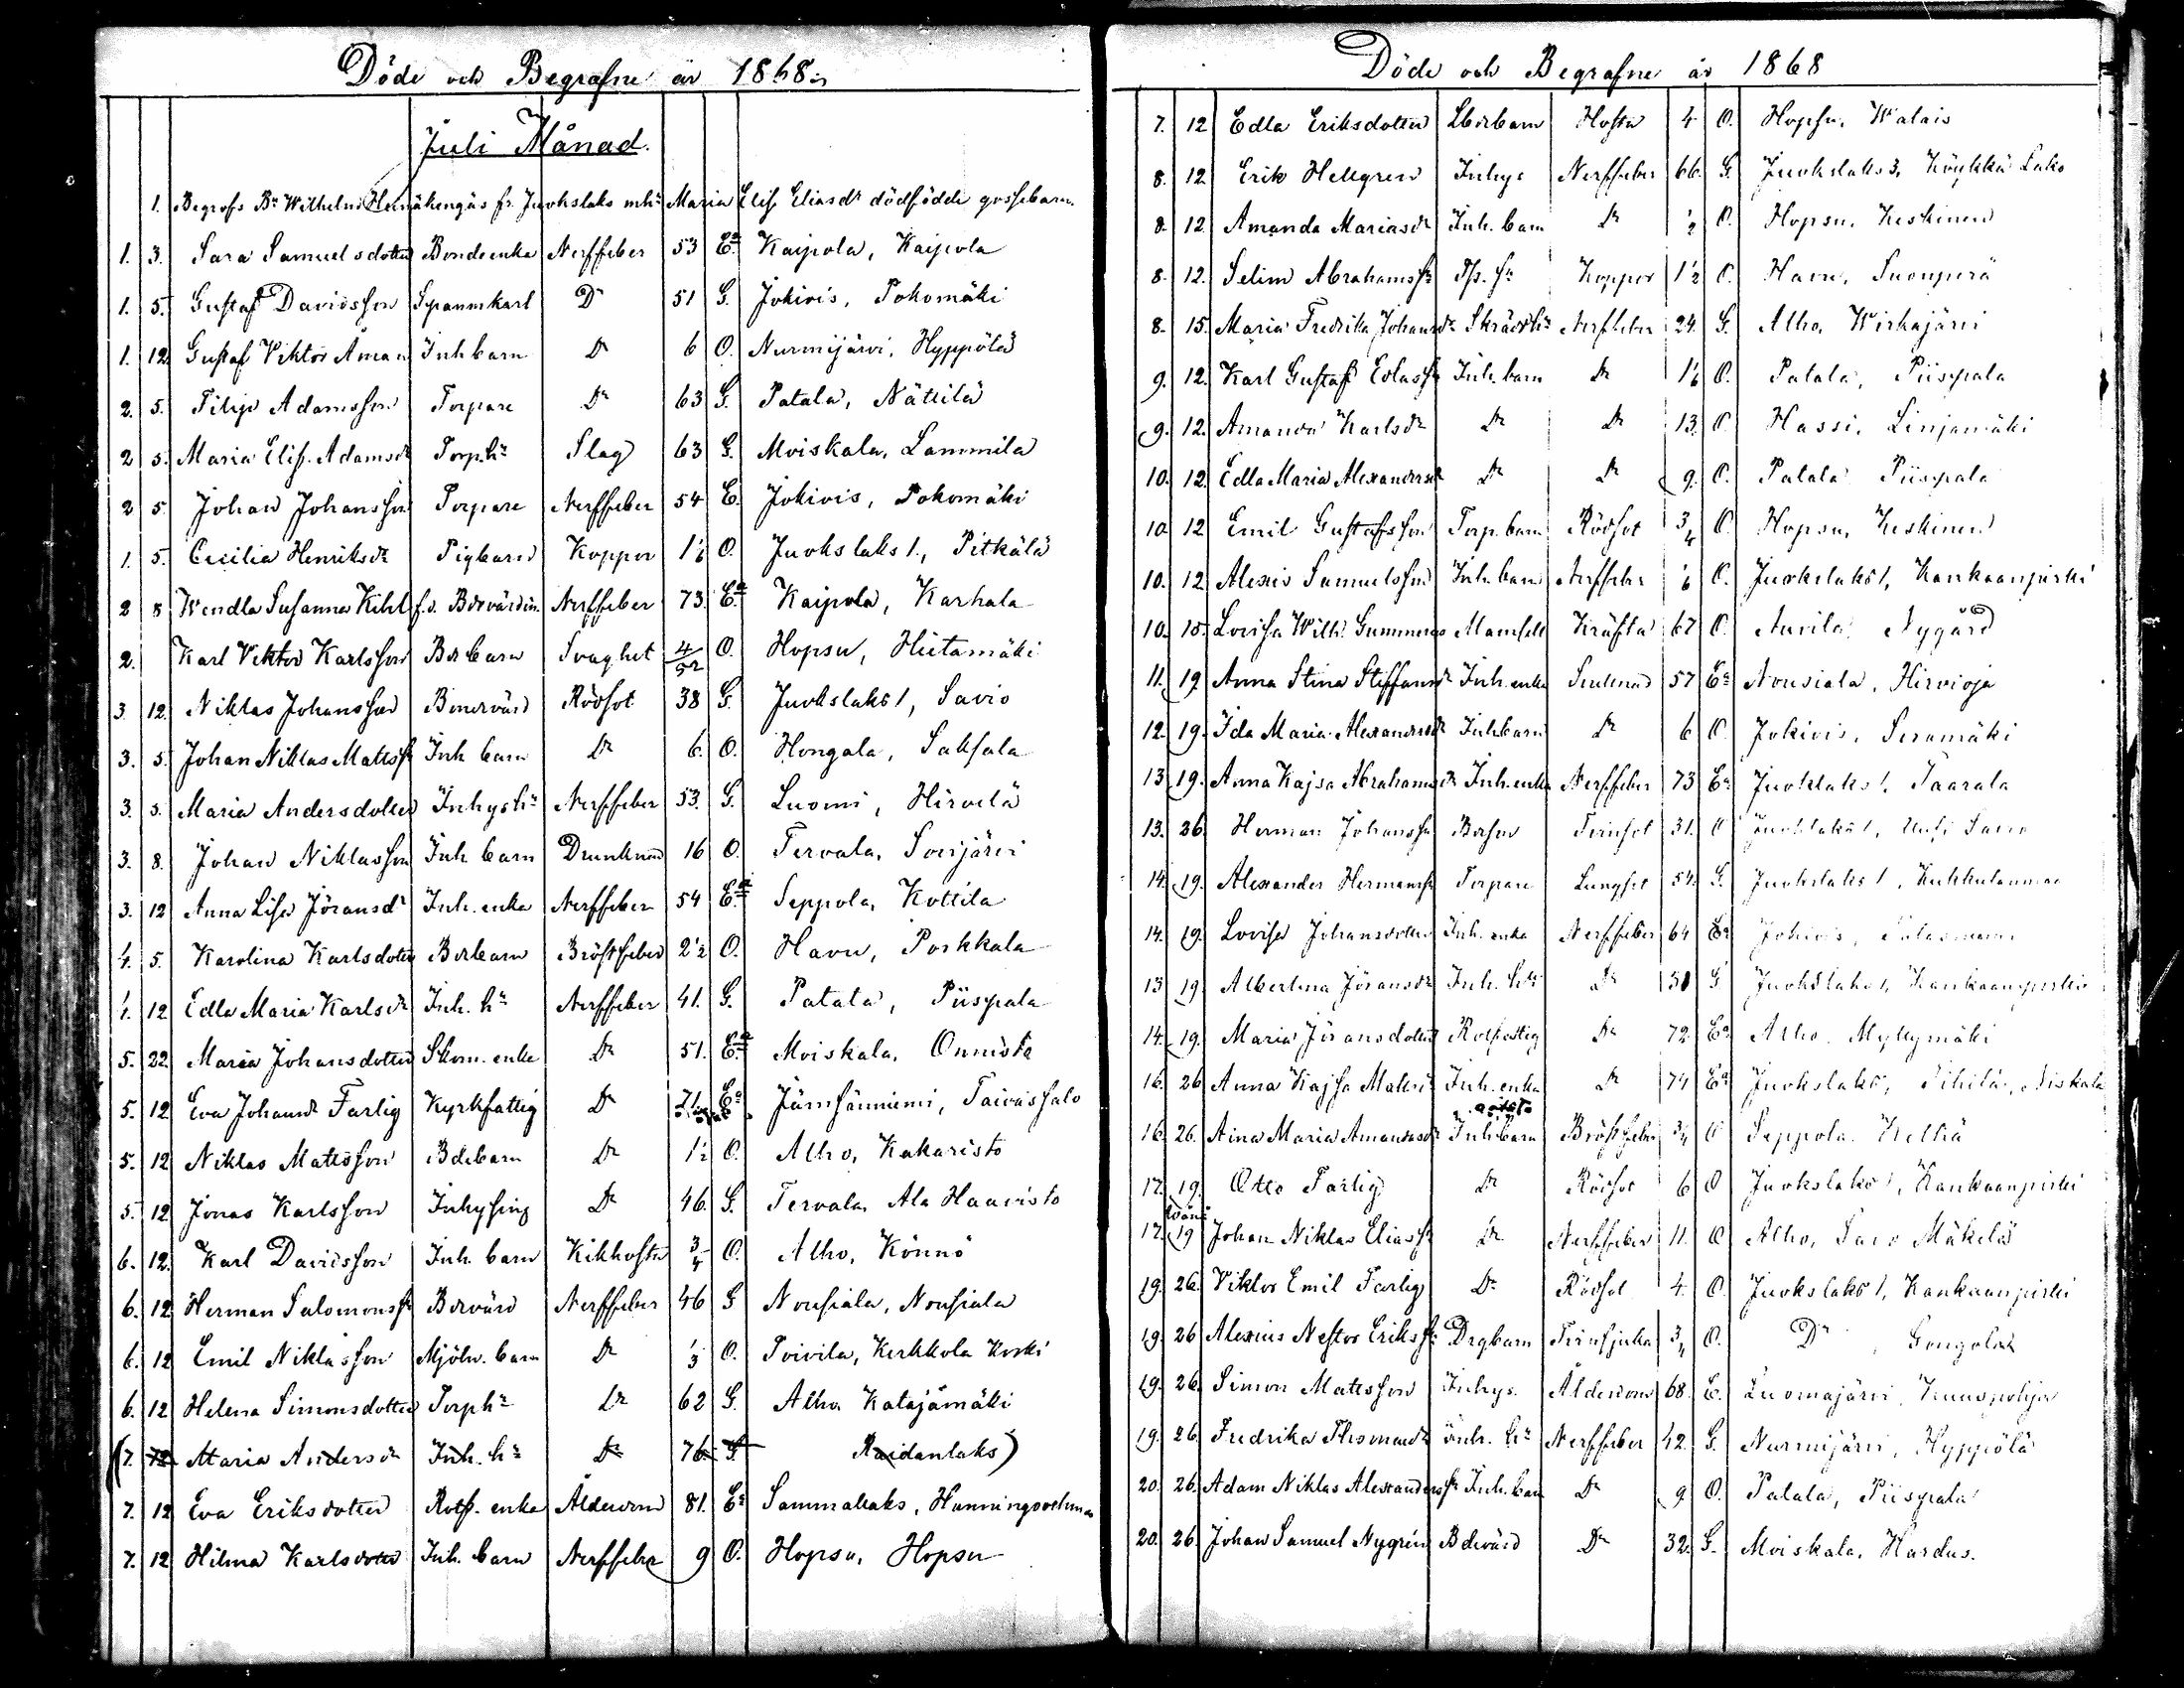 Döde och Begrafne år 1868.
Juli Månad.
1. Begrofs Bn Wilhelm Heinäkengäs fr. Juokslaks mhu Maria Elis. Eliasdr dödfödde gossebarn
1. 3. Sara Samuelsdotter Bondeenka Nerffeber 53 Ea Kaipola, Kaipola
1. 5. Gustaf Davidsson Spannkarl Do 51 G. Jokivis, Pokomäki
1. 12. Gustaf Viktor Åman Inh barn Do 6 O. Nurmijärvi, Hyppölä
2. 5. Filip Adamsson Torpare Do 63 G. Patala, Nättilä
2 5. Maria Elis. Adamsdr Torp.hu Slag 63 G. Moiskala, Lammila
2 5. Johan Johansson Torpare Nerffeber 54 E. Jokivis, Pokomäki
1. 5. Cecilia Henriksdr Pigbarn Koppor 1/6 O. Juokslaks 1., Pitkälä
2 8 Wendla Susanna Kihl f.d. Bdevärdin. Nerffeber 73. Ea Kaipola, Karhala
2. Karl Viktor Karlsson Bdebarn Svaghet 4/52 O. Hopsu, Hietamäki
3. 12. Niklas Johansson Bondevärd Rödsot 38 G. Juokslaks 1, Savio
3. 5. Johan Niklas Mattssn Inh barn Do 6. O. Hongala, Saksala
3. 5. Maria Andersdotter Inhyshu Nerffeber 53. G. Luomi, Hirvelä
3. 8. Johan Niklasson Inh barn Drunknad 16 O. Tervala, Sovijärvi
3. 12 Anna Lisa Jöransdr Inh. enka Nerffeber 54 Ea Seppola, Kottila
4. 5. Karolina Karlsdotter Bdebarn Bröstfeber 2 1/2 O. Havu, Porkkala
4. 12 Edla Maria Karlsdr Inh. hu Nerffeber 41. G. Patala, Piispala
5. 22. Maria Johansdotter Skom. enka Do 51. Ea Moiskala, Onnista
5. 12 Eva Johansdr Farlig Kyrkfattig Do 71. Ea Jämsänniemi, Taivassalo
5. 12 Niklas Mattsson Bdebarn Do 1 1/2 O. Alho, Kakaristo
5. 12 Jonas Karlsson Inhysing Do 46. G. Tervala, Ala Haavisto
6. 12. Karl Davidsson Inh. barn Kikhosta 3/4 O. Alho, Könnö
6. 12 Herman Salomonssn Bdevärd Nerffeber 46 G Nousiala, Nousiala
6. 12 Emil Niklasson Mjöln. barn Do 1/3 O. Toivila, Kerkkola Koski
6. 12 Helena Simonsdotter Torphu Do 62 G. Alho Katajamäki
(7. 12 Maria Andersdr Inh. hu Do 76. G Raidanlaks)
7. 12 Eva Eriksdotter Rotf. enka Ålderdom 81. Ea Sammallaks, Hanningsvehmas
7. 12 Hilma Karlsdotter Inh. barn Nerffeber 9 O. Hopsu, Hopsu
Döde och Begrafne år 1868
7. 12 Edla Eriksdotter Lbdebarn Hosta 4 O. Hopsu, Walais
8. 12 Erik Hellgren Inhys Nerffeber 66. G. Juokslaks 3, Köykkä Laks
8. 12 Amanda Mariasdr Inh. barn Do 1/2 O. Hopsu, Keskinen
8. 12. Selim Abrahamssn Tp. sn Koppor 1 1/2 O. Havu, Suonperä
8. 15. Maria Fredrika Johansdr Skräddhu Nerffeber 24. G. Alho, Wirkajärvi
9. 12. Karl Gustaf Edlassn Inh. barn Do 1/6 O. Patala, Piispala
9. 12. Amanda Karlsdr Do Do 13. O. Hassi, Linjamäki
10. 12 Edla Maria Alexandersdr Do Do 9. O. Patala Piispala
10 12 Emil Gustafsson Torp. barn Rödsot 3/4 O Hopsu, Keskinen
10. 12 Alexis Samuelsson Inh. barn Nerffeber 1/6 O. Juokslaks 1, Kankaanpirtti
10. 15. Lovisa Wilh. Gummerus Mamsell Kräfta 67 O. Auvila Nygård
11. 19 Anna Stina Steffansdr Inh. enka 57 Ea Nousiala, Hirvioja
12. 19. Ida Maria Alexandersdr Inh barn Do 6 O. Jokivis, Seramäki
13 19. Anna Kajsa Abrahamsdr Inh. enka Nerffeber 73 Ea Juokslaks 1. Taarala
13. 26 Herman Johanssn Bdeson Tvinsot 31. O Juokslaks 1, Savio
14. 19. Alexander Hermanssn Torpare Lungsot 54. G. Juokslaks 1, Kukkulanmaa
14. 19. Lovisa Johansdotter Inh. enka Nerffeber 64 Ea Jokivis,
13 19 Albertina Jöransdr Inh. hu Do 51 G Juokslaks 1, Kankaanpirtti
14. 19. Maria Jöransdotter Rotfattig Do 72. Ea Alho. Myllymäki
16. 26 Anna Kajsa Mattsdr Inh. enka Do 74 Ea Juokslaks, Pihilä, Niskala
16. 26. Aina Maria Amandasdr Inh barn Bröstfeber 3/4 O Seppola. Kelhä
17. 19. Otto Farlig Do Rödsot 6 O Juokslaks 1, Kankaanpirtti
17. 19 Johan Niklas Eliassn Do Nerffeber 11. O Alho, Mäkelä
19. 26. Viktor Emil Farlig Do Rödsot 4. O. Juokslaks 1, Kankaanpirtti
19. 26 Alexius Nestor Erikssn Drgbarn Tvinsjuka 3/4 O. Do, Gongola
19. 26. Simon Mattsson Inhys. Ålderdom 68. E. Luomajärvi, Kuuspohja
19. 26. Fredrika Thomasdr Inh. hu Nerffeber 42. G. Nurmijärvi, Hyppölä
20. 26. Adam Niklas Alexanderssn Inh. barn Do 9 O. Patala, Piispala
20. 26. Johan Samuel Nygrén Bdevärd Do 32. G. Moiskala, Hardus.